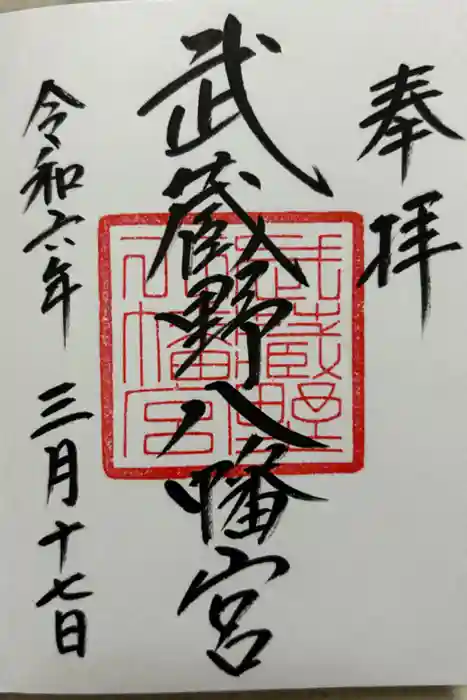 奉拝
武蔵野八幡宮
令和六年 三月十七日
武蔵野八幡宮